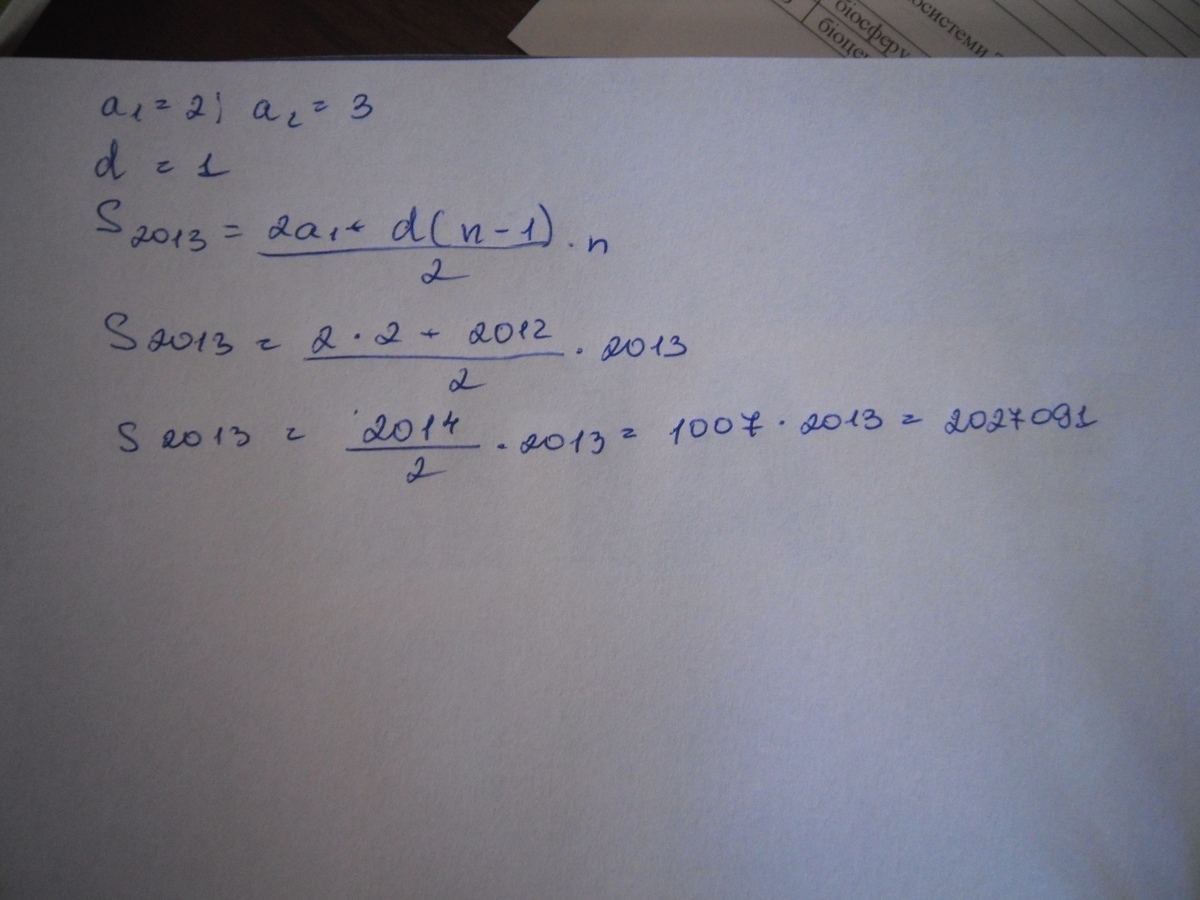 осистеми
біосферу
біоце
a₁ = 2; a₂ = 3
d = 1
S₂₀₁₃ = (2a₁ + d(n-1))/2 · n
S₂₀₁₃ = (2·2 + 2012)/2 · 2013
S₂₀₁₃ = 2014/2 · 2013 = 1007 · 2013 = 2027091